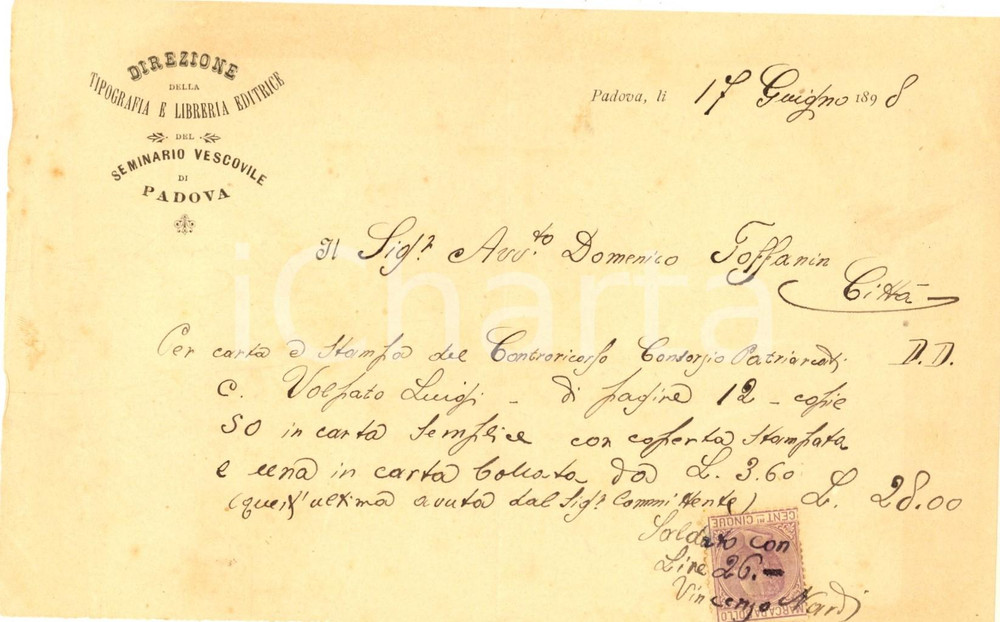 DIREZIONE
DELLA
TIPOGRAFIA E LIBRERIA EDITRICE
DEL
SEMINARIO VESCOVILE
DI
PADOVA
Padova, li 17 Guigno 1898
Il Sigr. Avv.to Domenico Toffanin
Città
Per carta e stampa del Controricorso Consorzio Patriarcati D.D.
C. Volpato Luigi - di pagine 12 - copie
50 in carta semplice con coperta stampata
e una in carta bollata da L. 3.60
(quest'ultima avuta dal Sigr. Committente) L. 28.00
Saldato con
Lire 26.-
Vincenzo Nardi
CENT.MI CINQUE
MARCA DA BOLLO
iCharta